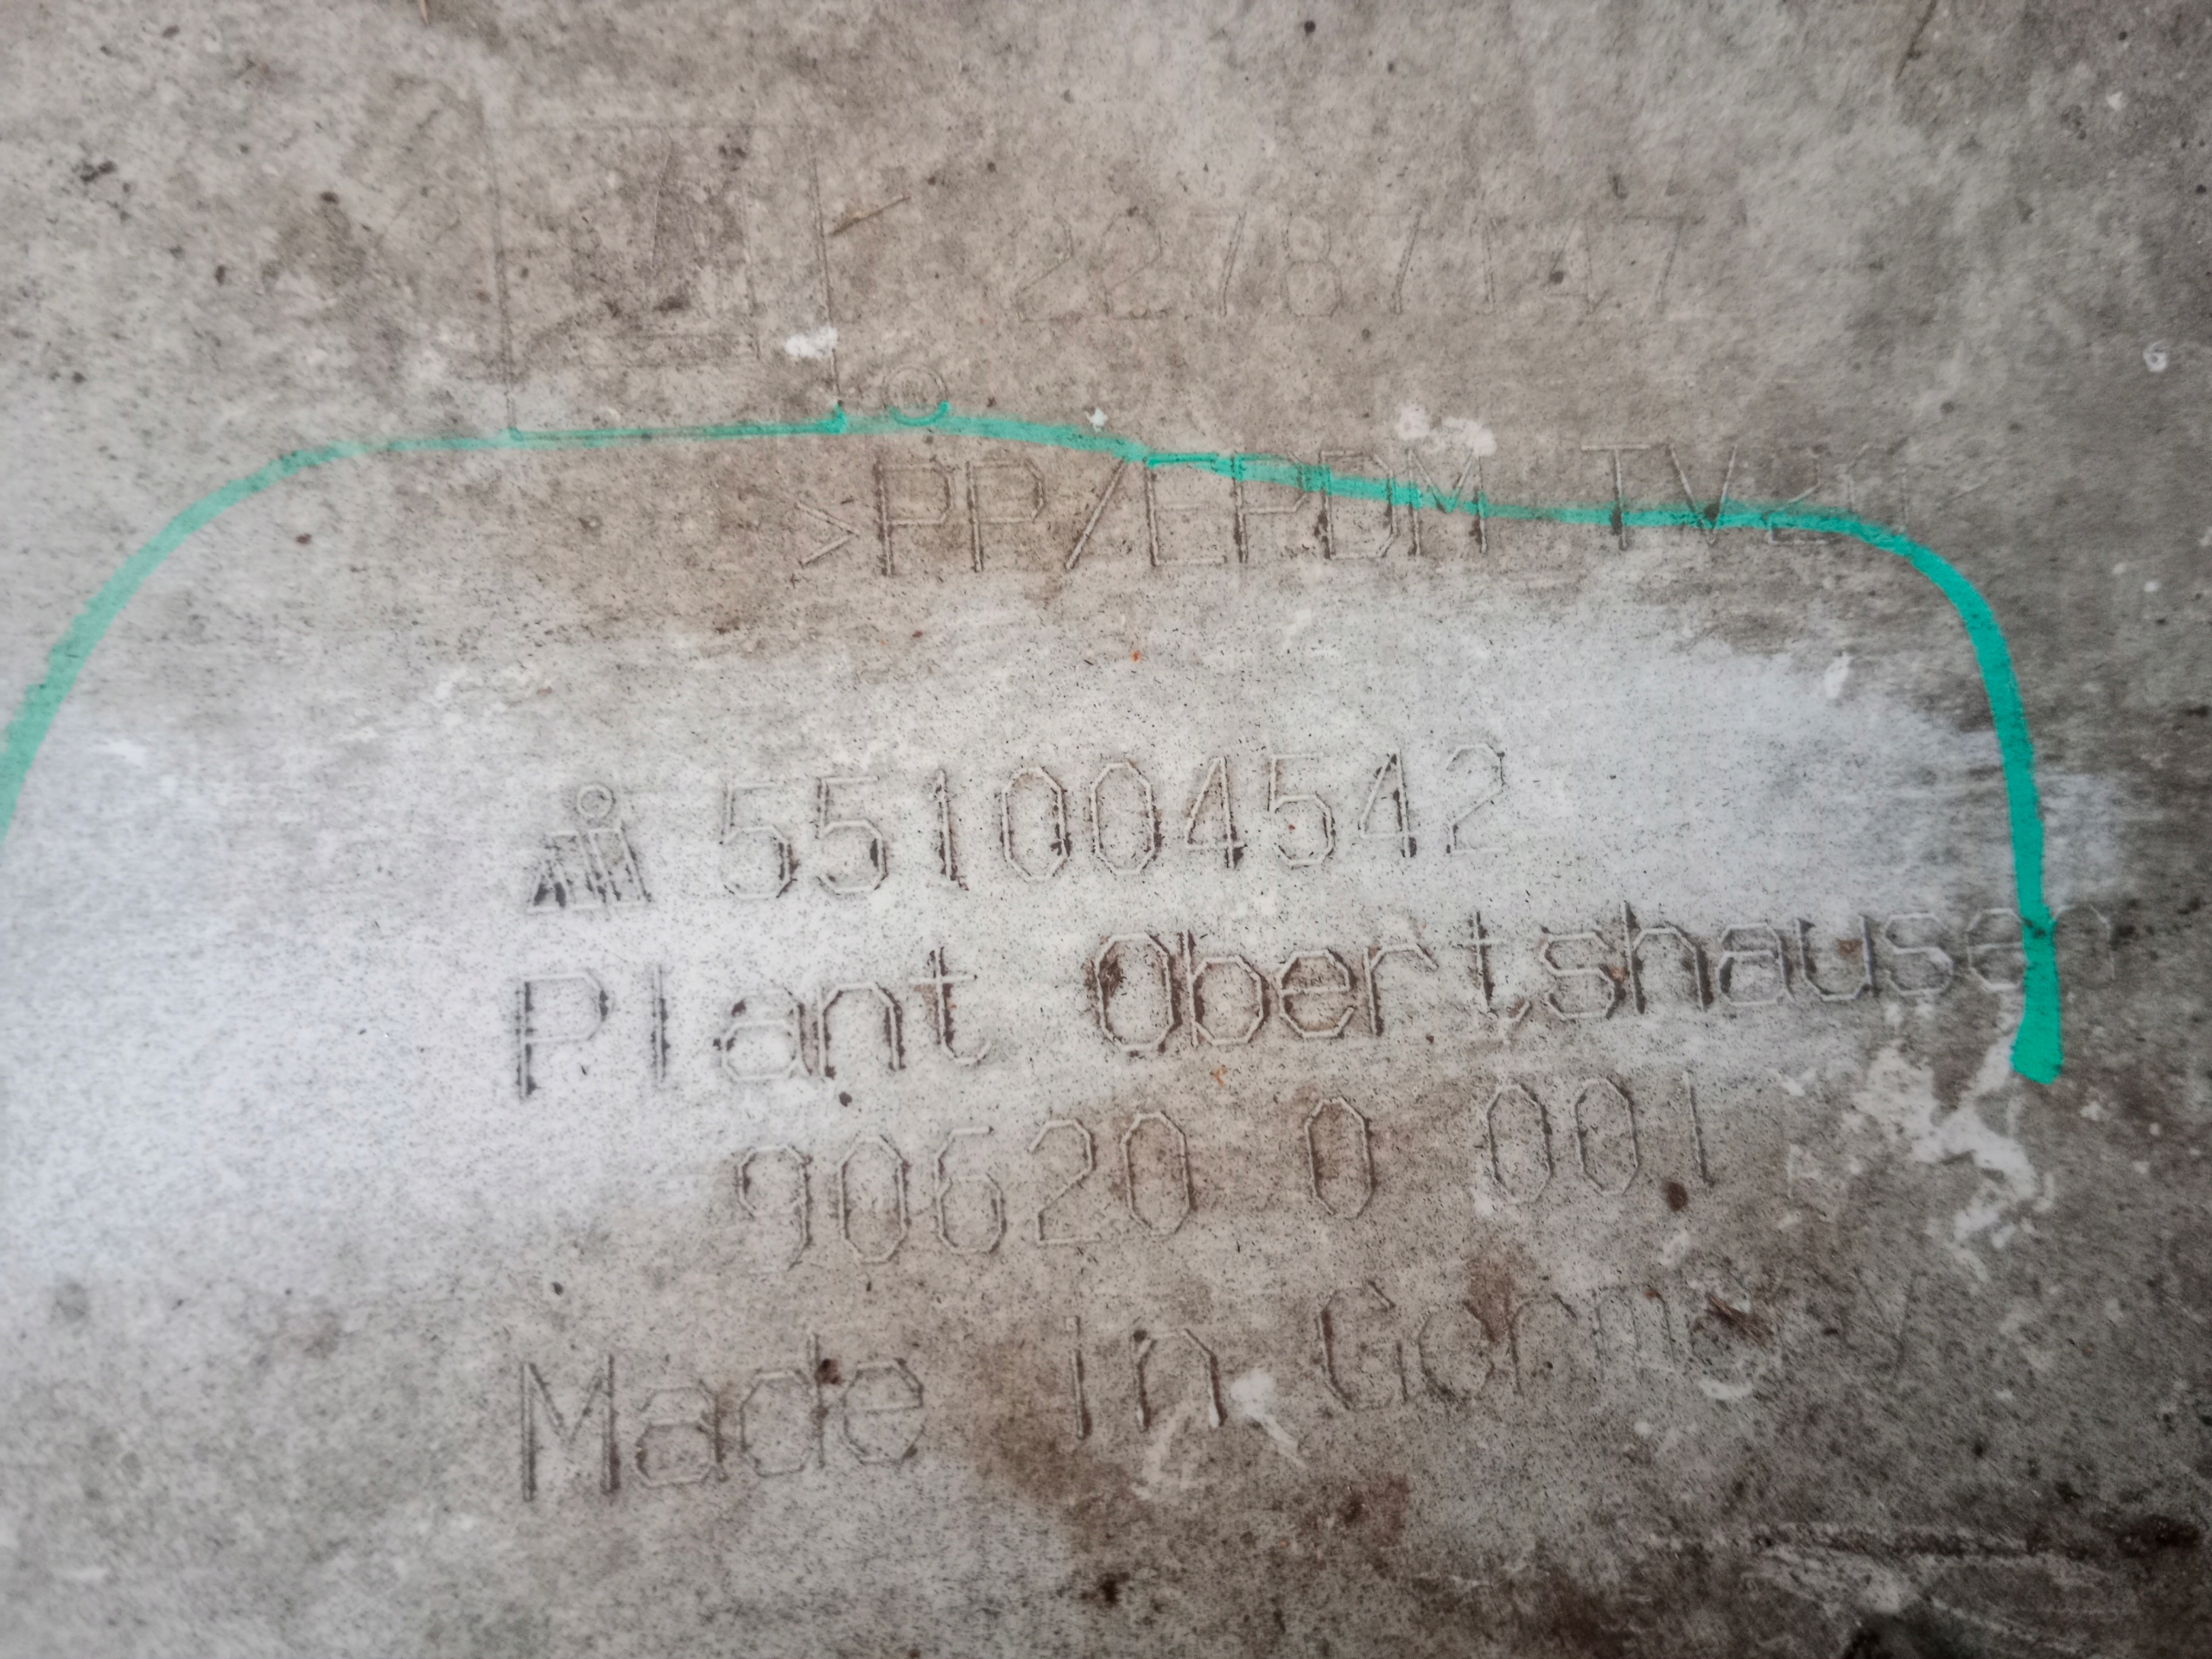 22787147
>PP/EPDM TV20<
551004542
Plant Obertshausen
90620 0 001
Made in Germany